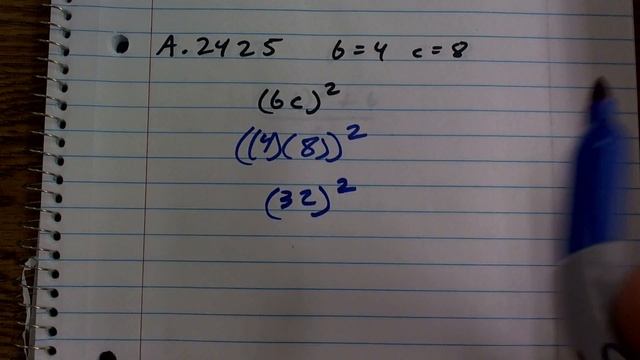 A.2425 b=4 c=8
(bc)²
((4)(8))²
(32)²